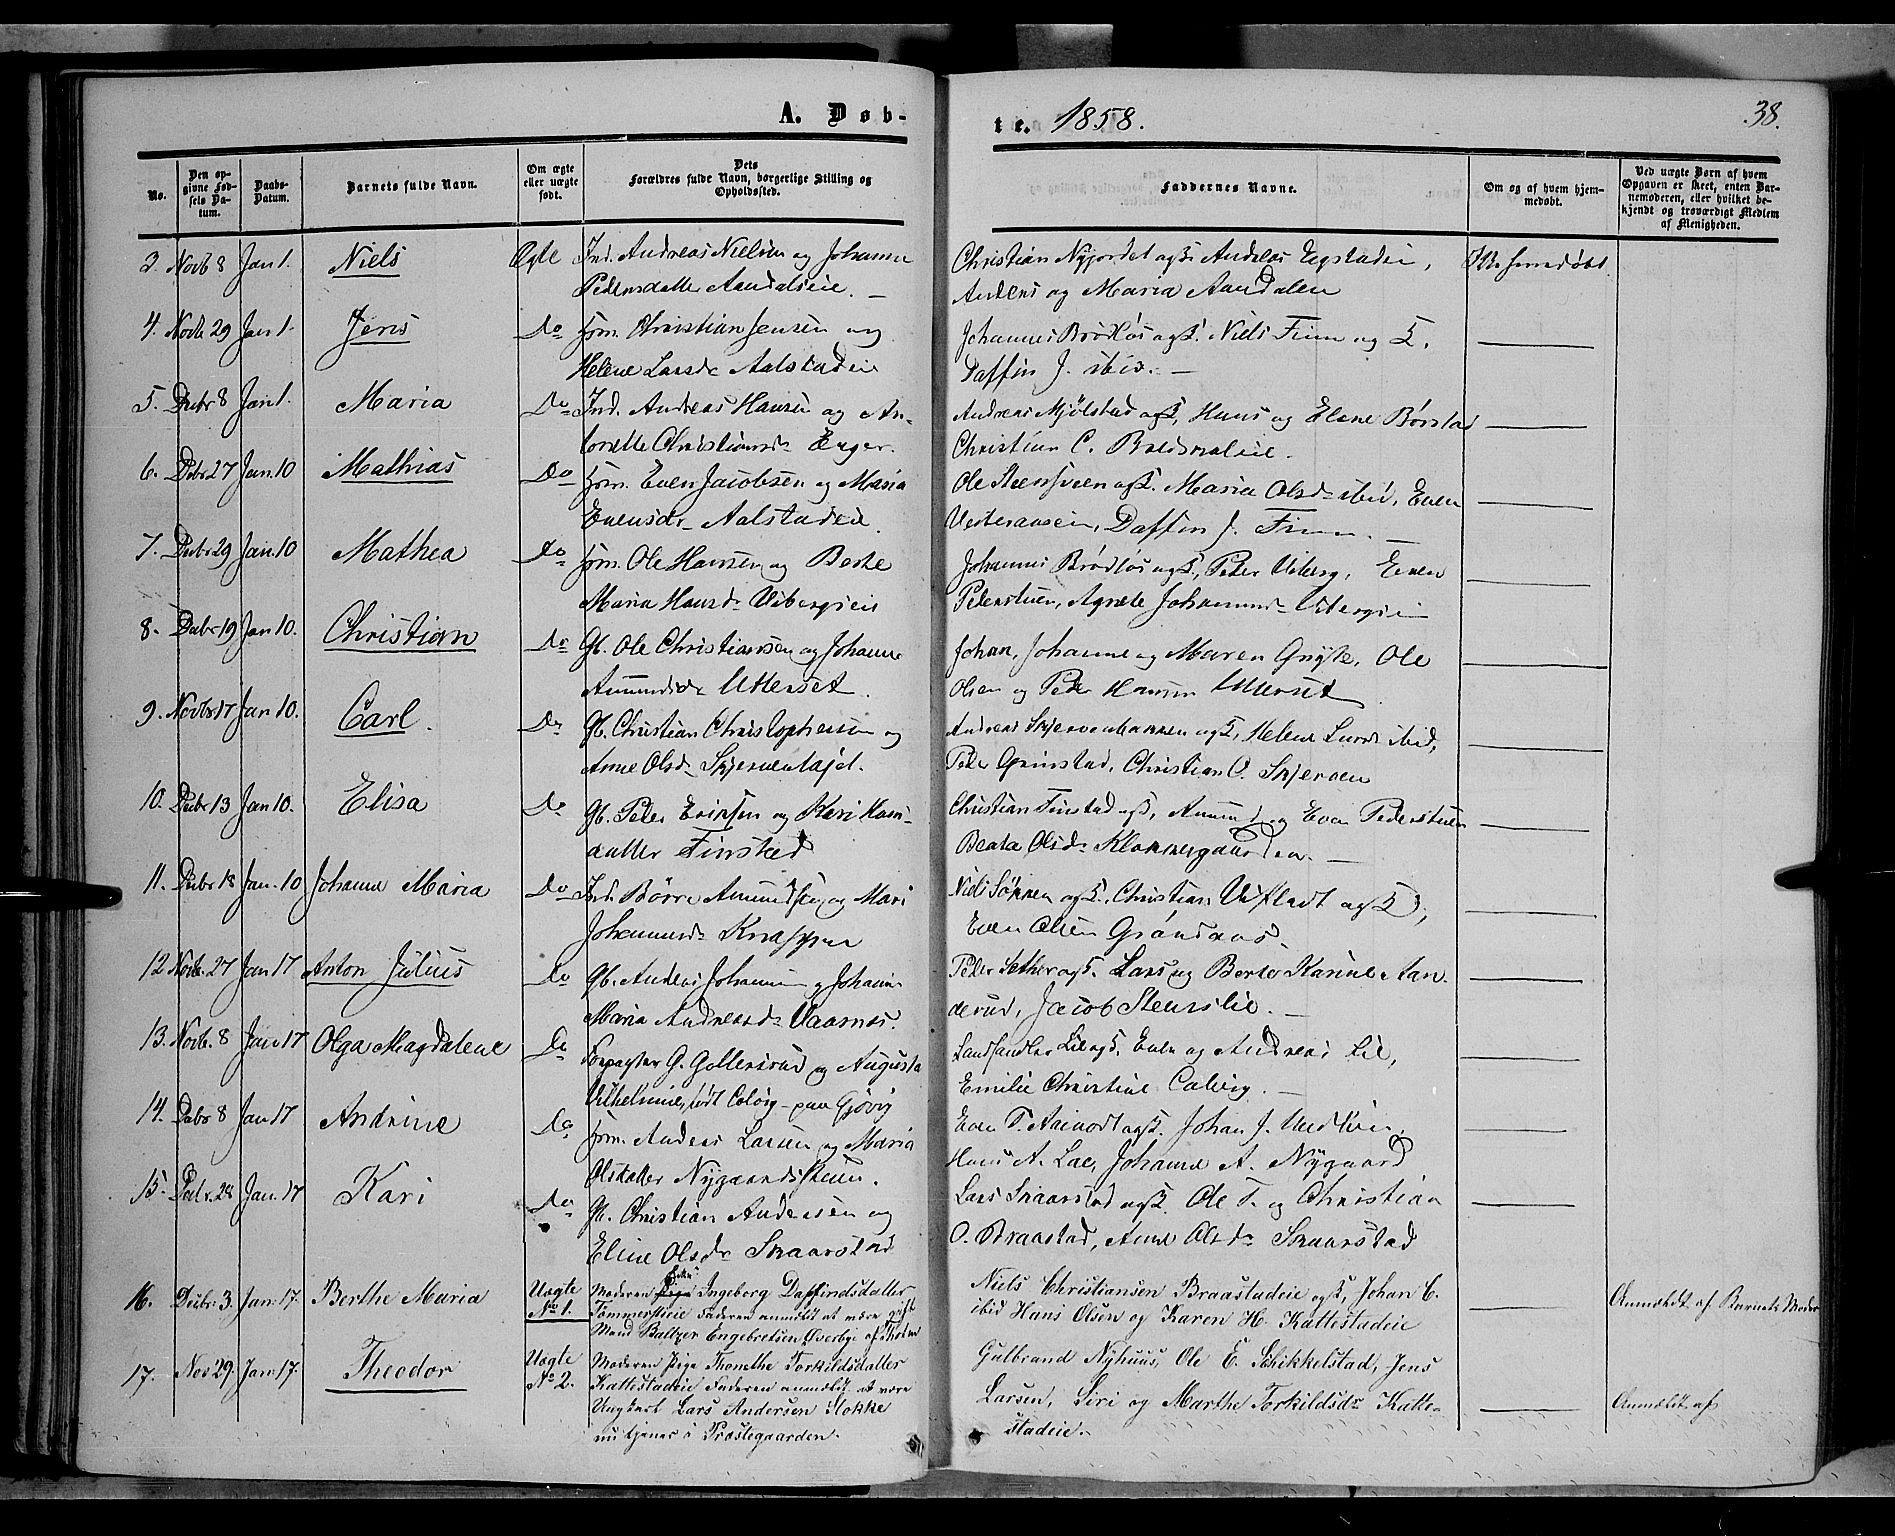 A. Døb-
te. 1858.
38.
No.
Den opgivne Fødsels Datum.
Daabs-Datum.
Barnets fulde Navn.
Om ægte eller uægte født.
Dets Forældres fulde Navn, borgerlige Stilling og Opholdssted.
Faddernes Navne.
Om og af hvem hjemmedøbt.
Ved uægte Børn af hvem Opgaven er skeet, enten Barnemoderen, eller hvilket bekjendt og troværdigt Medlem af Menigheden.
3. Novb 8 Jan 1. Niels Ægte Ind. Andreas Nielsen og Johanne
Pedersdatter Aandalseie. —
Christian Nyjordet ogs. Andreas
Anders og Maria Aandalen
Ikke hjemmedøbt
4. Novb 29 Jan 1. Jens Do Hrm. Christian Jensen og
Helene Larsdr Aalstadeie
Johannes Brødløs ogs. Niels Finn og
Daffin J. ibid. —
5. Decbr 8 Jan 1. Maria Do Ind. Andreas Hansen og An-
tonette Christiansdr Enger.
Andreas Mjølstad ogs, Hans og Elene Børstad
Christian C.
6. Debr 27 Jan. 10 Mathias Do Hrm. Even Jacobsen og Maria
Evensdr Aalstadeie.
Ole Steensveen ogs. Maria Olsdr ibid, Even
Daffin J. Finn. —
7. Decbr 29 Jan. 10 Mathea Do Hrm. Ole Hansen og Berte
Maria Hansdr Vibergseie
Johannes Brødløs ogs., Peder Viberg, Even
Pederstuen, Agnete Johannesdr Vibergseie
8. Decbr 19 Jan 10. Christian Do Gb. Ole Christiansen og Johanne
Amundsdr Ullerset.
Johan, Johanne og Maren Gryte, Ole
Olsen og Peder Hansen Ullerset
9. Novbr 17 Jan 10. Carl. Do Gb. Christian Christophersen og
Anne Olsdr
Andreas ogs, Helene ibid,
Peder Grimstad, Christian O. Skjerven
10. Decbr 13 Jan 10. Elisa Do Gb. Peder Eriksen og Kari Hans-
datter Finstad
Christian Finstad ogs, Amund og Even Pederstuen
Beata Olsdr Klokkergaarden. —
11. Decbr 18 Jan. 10 Johanne Maria Do Ind. Børre Amundsen og Mari
Johannesdr Knappen
Niels ogs., Christian ogs,
Even Olsen Grøndaos.
12 Novb. 27 Jan 17 Anton Julius Do Gb. Anders Johannesen og Johanne
Maria Andreasdr Vaarnæs.
Peder Sether ogs. Lars og Berte Karine Aan-
derud, Jacob Steenslie. —
13. Novb. 8 Jan 17 Olga Magdalene Do Forpagter G. Gollersrud og Augusta
Vilhelmine, født Colvig - paa Gjøvig
Landhandler Lie ogs. Even og Andreas Lie,
Emilie Christine Colvig. —
14. Debr 8 Jan 17 Andrine Do Hrm. Anders Larsen og Maria
Olsdatter
Even T. ogs. Johan J.
Hans A. Lae, Johanne A. Nygaard
15. Decbr. 28 Jan. 17 Kari Do Gb. Christian Andersen og
Eline Olsdr Skaarstad
Lars Skaarstad ogs. Ole T. og Christian
O. Braastad, Anne Olsdr Skaarstad
16. Decbr. 3. Jan. 17. Berthe Maria Uægte
No 1.
Moderen Enke Pige Ingeborg Daffindsdatter
Tømmerstieie Faderen anmeldt at være gift
Mand Baltzer Engebretsen Øverbye af Toten
Niels Christiansen Braastadeie ogs, Johan C.
ibid Hans Olsen og Karen H. Kattestadeie
Anmeldt af Barnets Moder
17. Nov 29. Jan. 17. Theodor Uægte
No 2.
Moderen Pige Thonethe Torkildsdatter
Kattestadeie Faderen anmeldt at være
Ungkarl Lars Andersen Stokke
nu tjener i Præstegaarden.
Gulbrand Nyhuus, Ole E. Schikkelstad, Jens
Larsen, Siri og Marthe Torkildsdr Katte-
stadeie.
Anmeldt af